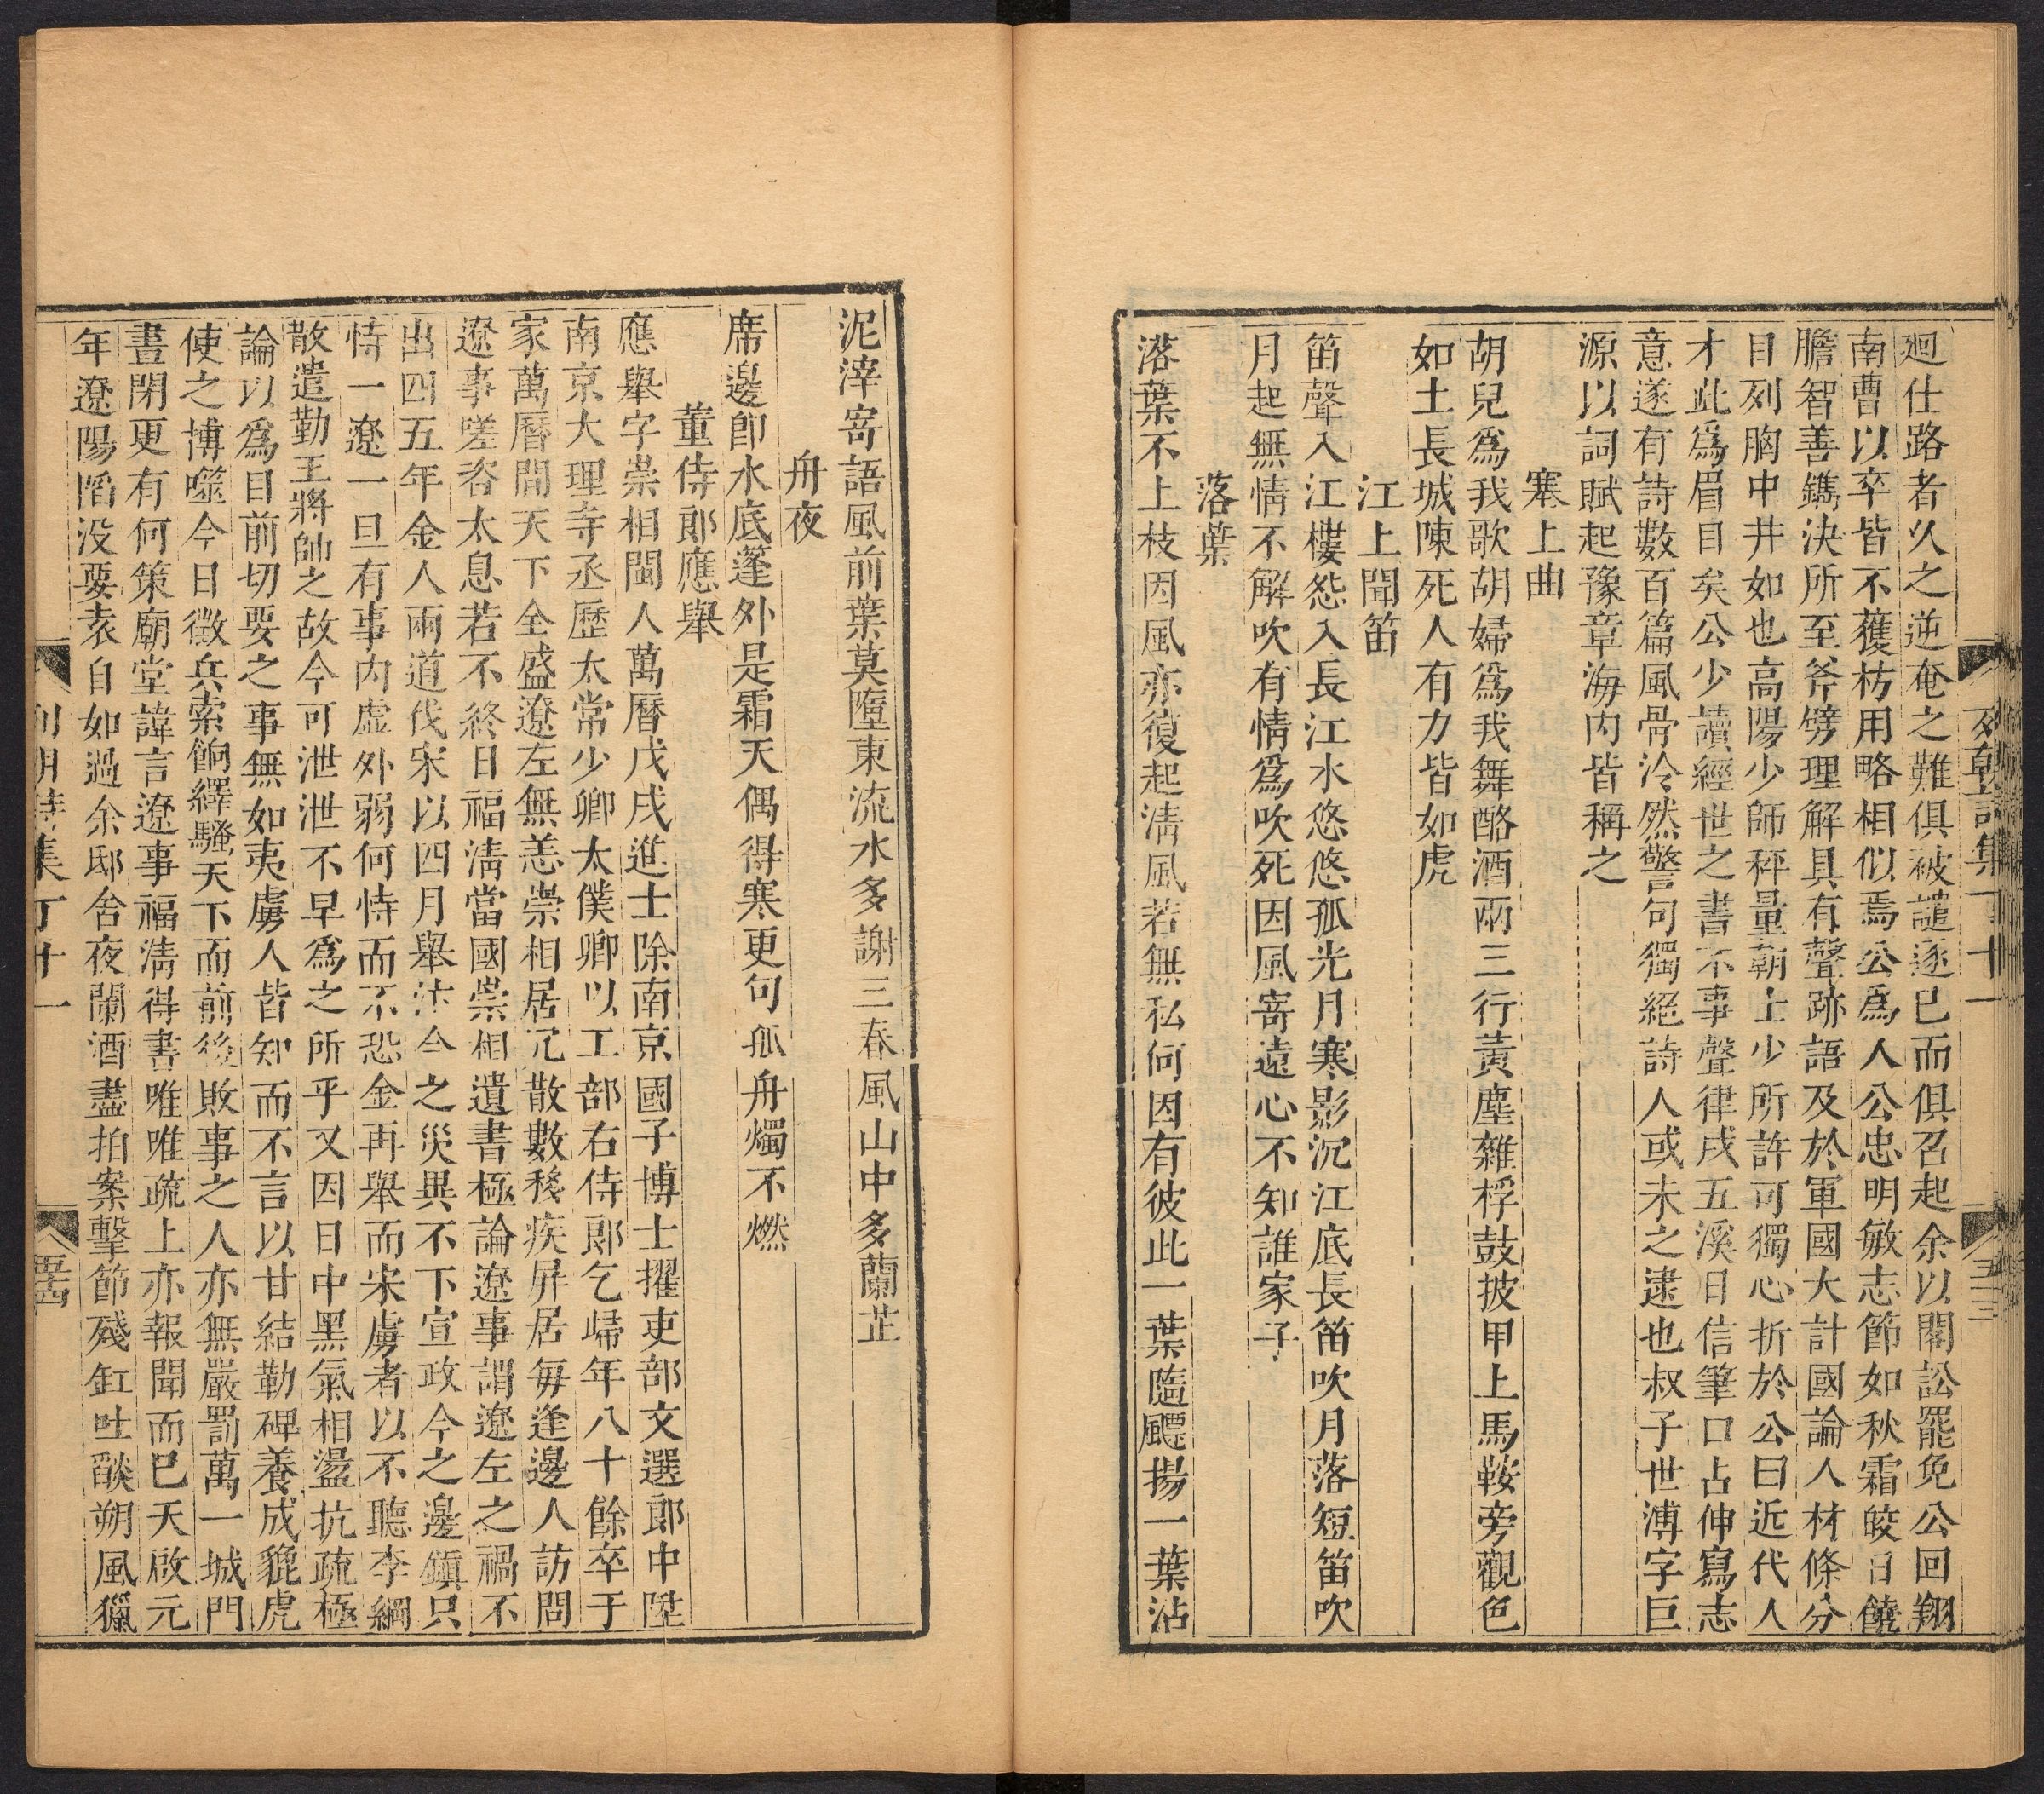 列朝詩集丁十一
五三
廻仕路者久之逆奄之難俱被譴逐已而俱召起余以閣訟罷免公回翔
南曹以卒皆不獲枋用略相似焉公爲人公忠明敏志節如秋霜皎日饒
膽智善鐫決所至斧劈理解具有聲跡語及於軍國大計國論人材條分
目列胸中井如也高陽少師秤量朝士少所許可獨心折於公曰近代人
才此爲眉目矣公少讀經世之書不事聲律戌五溪日信筆口占伸寫志
意遂有詩數百篇風骨泠然警句獨絕詩人或未之逮也叔子世溥字巨
源以詞賦起豫章海内皆稱之
塞上曲
胡兒爲我歌胡婦爲我舞酪酒兩三行黃塵雜桴鼓披甲上馬鞍旁觀色
如土長城陳死人有力皆如虎
江上聞笛
笛聲入江樓怨入長江水悠悠孤光月寒影沉江底長笛吹月落短笛吹
月起無情不解吹有情爲吹死因風寄遠心不知誰家子
落葉
落葉不上枝因風亦復起淸風若無私何因有彼此一葉隨飃揚一葉沾
泥滓寄語風前葉莫墮東流水多謝三春風山中多蘭芷
舟夜
席邊卽水底蓬外是霜天偶得寒更句孤舟燭不燃
董侍郞應舉
應舉字崇相閩人萬曆戊戌進士除南京國子博士擢吏部文選郞中陞
南京大理寺丞歷太常少卿太僕卿以工部右侍郞乞歸年八十餘卒于
家萬曆間天下全盛遼左無恙崇相居冗散數移疾屏居每逢邊人訪問
遼事嗟咨太息若不終日福淸當國崇相遺書極論遼事謂遼左之禍不
出四五年金人兩道伐宋以四月舉法今之災異不下宣政今之邊鎭只
恃一遼一旦有事内虛外弱何恃而不恐金再舉而宋虜者以不聽李綱
散遣勤王將帥之故今可泄泄不早爲之所乎又因日中黑氣相盪抗疏極
論以爲目前切要之事無如夷虜人皆知而不言以甘結勒碑養成貔虎
使之博噬今日徵兵索餉繹騷天下而前後敗事之人亦無嚴罰萬一城門
晝閉更有何策廟堂諱言遼事福淸得書唯唯疏上亦報聞而已天啟元
年遼陽陷没要袁自如過余邸舍夜闌酒盡拍案擊節殘缸吐燄朔風獵
列朝詩集丁十一
五四